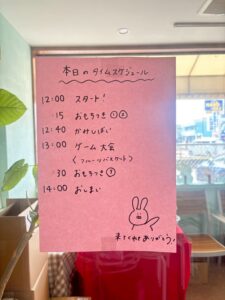 本日のタイムスケジュール
12:00 スタート!
:15 おもちつき①②
12:40 かみしばい
13:00 ゲーム大会
(フルーツバスケット)
:30 おもちつき③
14:00 おしまい
来てくれてありがとう!